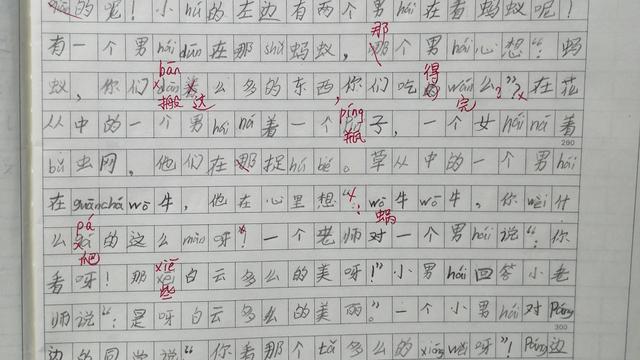 的呢！小hú的左边有两个男hái在看蚂蚁呢！
有一个男hái dūn在那shǔ蚂蚁，那个男hái心想“：蚂
bān 那 得
蚁，你们么多的东西，你们吃wán么？”在花
搬 这 完
píng
从中的一个男hái ná着一个子，一个女hái ná着
瓶
280
bǔ虫网，他们在那捉hú dié。草从中的一个男hái
在guānchá wō牛，他在心里想“：wō牛wō牛，你wèi什
pá 蜗
么的这么màn呀！一个老师对一个男hái说“：你
爬 xiē
看呀！那白云多么的美呀！”小男hái回答小老
些
师说“：是呀白云多么的美丽。”一个小男hái对Páng
300
边的同学说“你看那个tǎ多么的xióngwěi呀”！Páng边